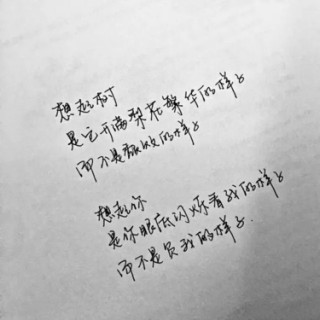 想起树
是它开满梨花繁华的样子
而不是颓败的样子
想起你
是你眼底闪烁看我的样子
而不是负我的样子.